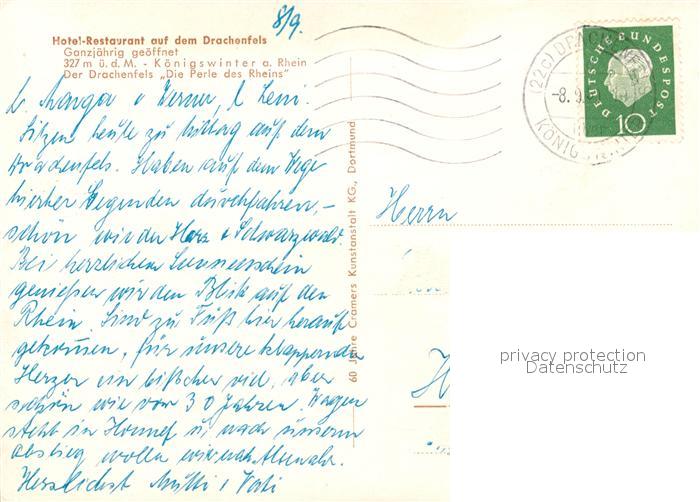 8/9.
Hotel-Restaurant auf dem Drachenfels
Ganzjährig geöffnet
327 m ü. d. M. - Königswinter a. Rhein
Der Drachenfels „Die Perle des Rheins"
L. Marga u Werner, l. Leni.
Sitzen heute zu Mittag auf dem
Drachenfels. Haben auf dem Wege
hierher Gegenden durchfahren, -
schön wie der Harz u Schwarzwald.
Bei herzlichem Sonnenschein
genießen wir den Blick auf den
Rhein. Sind zu Fuß hier herauf
gekommen, für unsere klappernden
Herzen ein bißchen viel, aber
schön wie vor 30 Jahren. Wagen
steht in Honnef u. nach unserm
Abstieg wollen wir nach
Herzlichst Mutti u Vati
60 Jahre Cramers Kunstanstalt KG., Dortmund
(22c) DRACHENFELS
-8.9.
KÖNIGSWINTER
DEUTSCHE BUNDESPOST
10
Herrn
H
privacy protection
Datenschutz